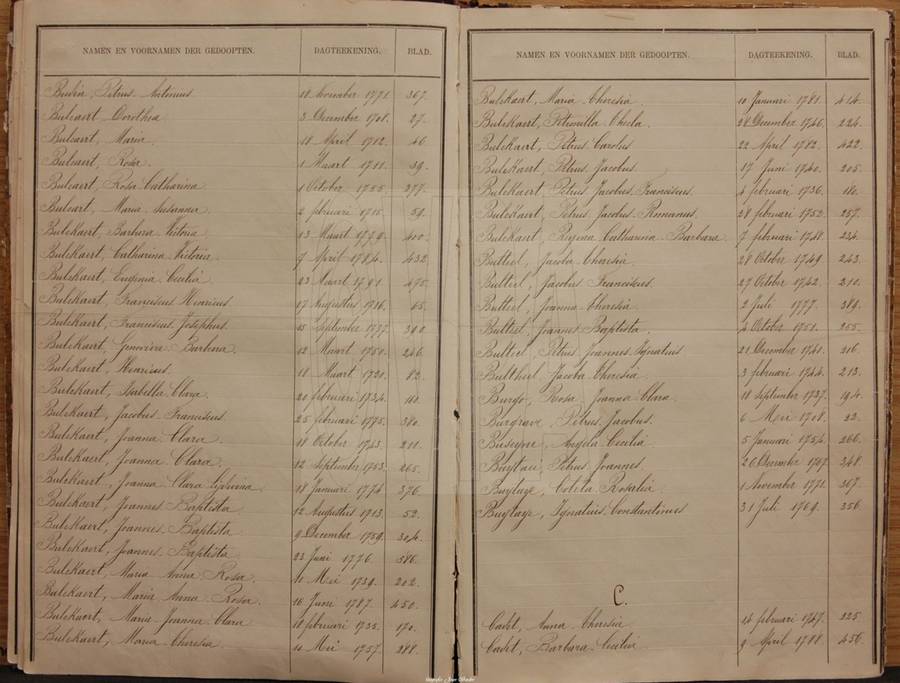 NAMEN EN VOORNAMEN DER GEDOOPTEN. DAGTEEKENING. BLAD.
Budin, Petrus Antonius 18 November 1771. 367.
Bulcart Dorothea 3 December 1701. 27.
Bulcart, Maria 18 April 1712. 46
Bulcart, Rosa 1 Maart 1711. 39.
Bulcart, Rosa Catharina 1 October 1755 277.
Bulcart, Maria Susanna 2 februari 1715. 59.
Bulckaert, Barbara Victoria 13 Maart 1779. 400.
Bulckaert, Catharina Victoria 7 April 1784. 432
Bulckaert, Eugenia Cecilia 23 Maart 1791. 475.
Bulckaert, Franciscus Henricus 17 Augustus 1716. 65.
Bulckaert, Franciscus Josephus. 15 September 1777. 390.
Bulckaert, Genovieve Barbara. 12 Maart 1750. 246.
Bulckaert, Henricus 18 Maart 1721. 82.
Bulckaert, Isabella Clara 20 februari 1734. 160.
Bulckaert, Jacobus Franciscus. 25 februari 1775. 380.
Bulckaert, Joanna Clara 18 October 1743. 211.
Bulckaert, Joanna Clara. 12 September 1753. 265.
Bulckaert, Joanna Clara 18 Januari 1774 376.
Bulckaert, Joannes Baptista 12 Augustus 1713. 52.
Bulckaert, Joannes Baptista 9 December 1759. 304.
Bulckaert, Joannes Baptista 23 Juni 1776. 386.
Bulckaert, Maria Anna Rosa. 11 Mei 1739. 202.
Bulckaert, Maria Anna Rosa. 16 Juni 1787. 450.
Bulckaert, Maria Joanna Clara 18 februari 1735. 170.
Bulckaert, Maria Theresia 10 Mei 1757. 288.
NAMEN EN VOORNAMEN DER GEDOOPTEN. DAGTEEKENING. BLAD.
Bulckaert, Maria Theresia. 10 Januari 1781. 414.
Bulckaert, Petronilla Thecla. 28 December 1746. 224.
Bulckaert, Petrus Carolus 22 April 1782. 422.
Bulckaert, Petrus Jacobus. 17 Juni 1740. 205.
Bulckaert Petrus Jacobus Franciscus. 4 februari 1736. 180.
Bulckaert, Petrus Jacobus Romanus. 28 februari 1752. 257.
Bulckaert, Regina Catharina Barbara. 7 februari 1748. 234.
Bulteel, Jacoba Theresia. 28 October 1749 243.
Bulteel, Jacobus Franciscus. 27 October 1742. 210.
Bulteel, Joanna Theresia. 2 Juli 1777. 389.
Bulteel, Joannes Baptista. 4 October 1751. 255.
Bulteel, Petrus Joannes Ignatius 21 December 1741. 216.
Bultheel, Jacoba Theresia. 3 februari 1744. 213.
Burgo, Rosa Joanna Clara. 18 September 1737. 194.
Burgrave, Petrus Jacobus. 6 Mei 1708. 22.
Buseyne, Angela Cecilia 5 Januari 1754. 266.
Buytaer, Petrus Joannes 26 December 1767. 348.
Buytaye, Coleta Rosalia. 1 November 1771. 367.
Buytaye, Ignatius Constantinus 31 Juli 1769. 356.
C.
Cadet, Anna Theresia. 14 februari 1747. 225
Cadet, Barbara Cecilia 9 April 1788. 456.